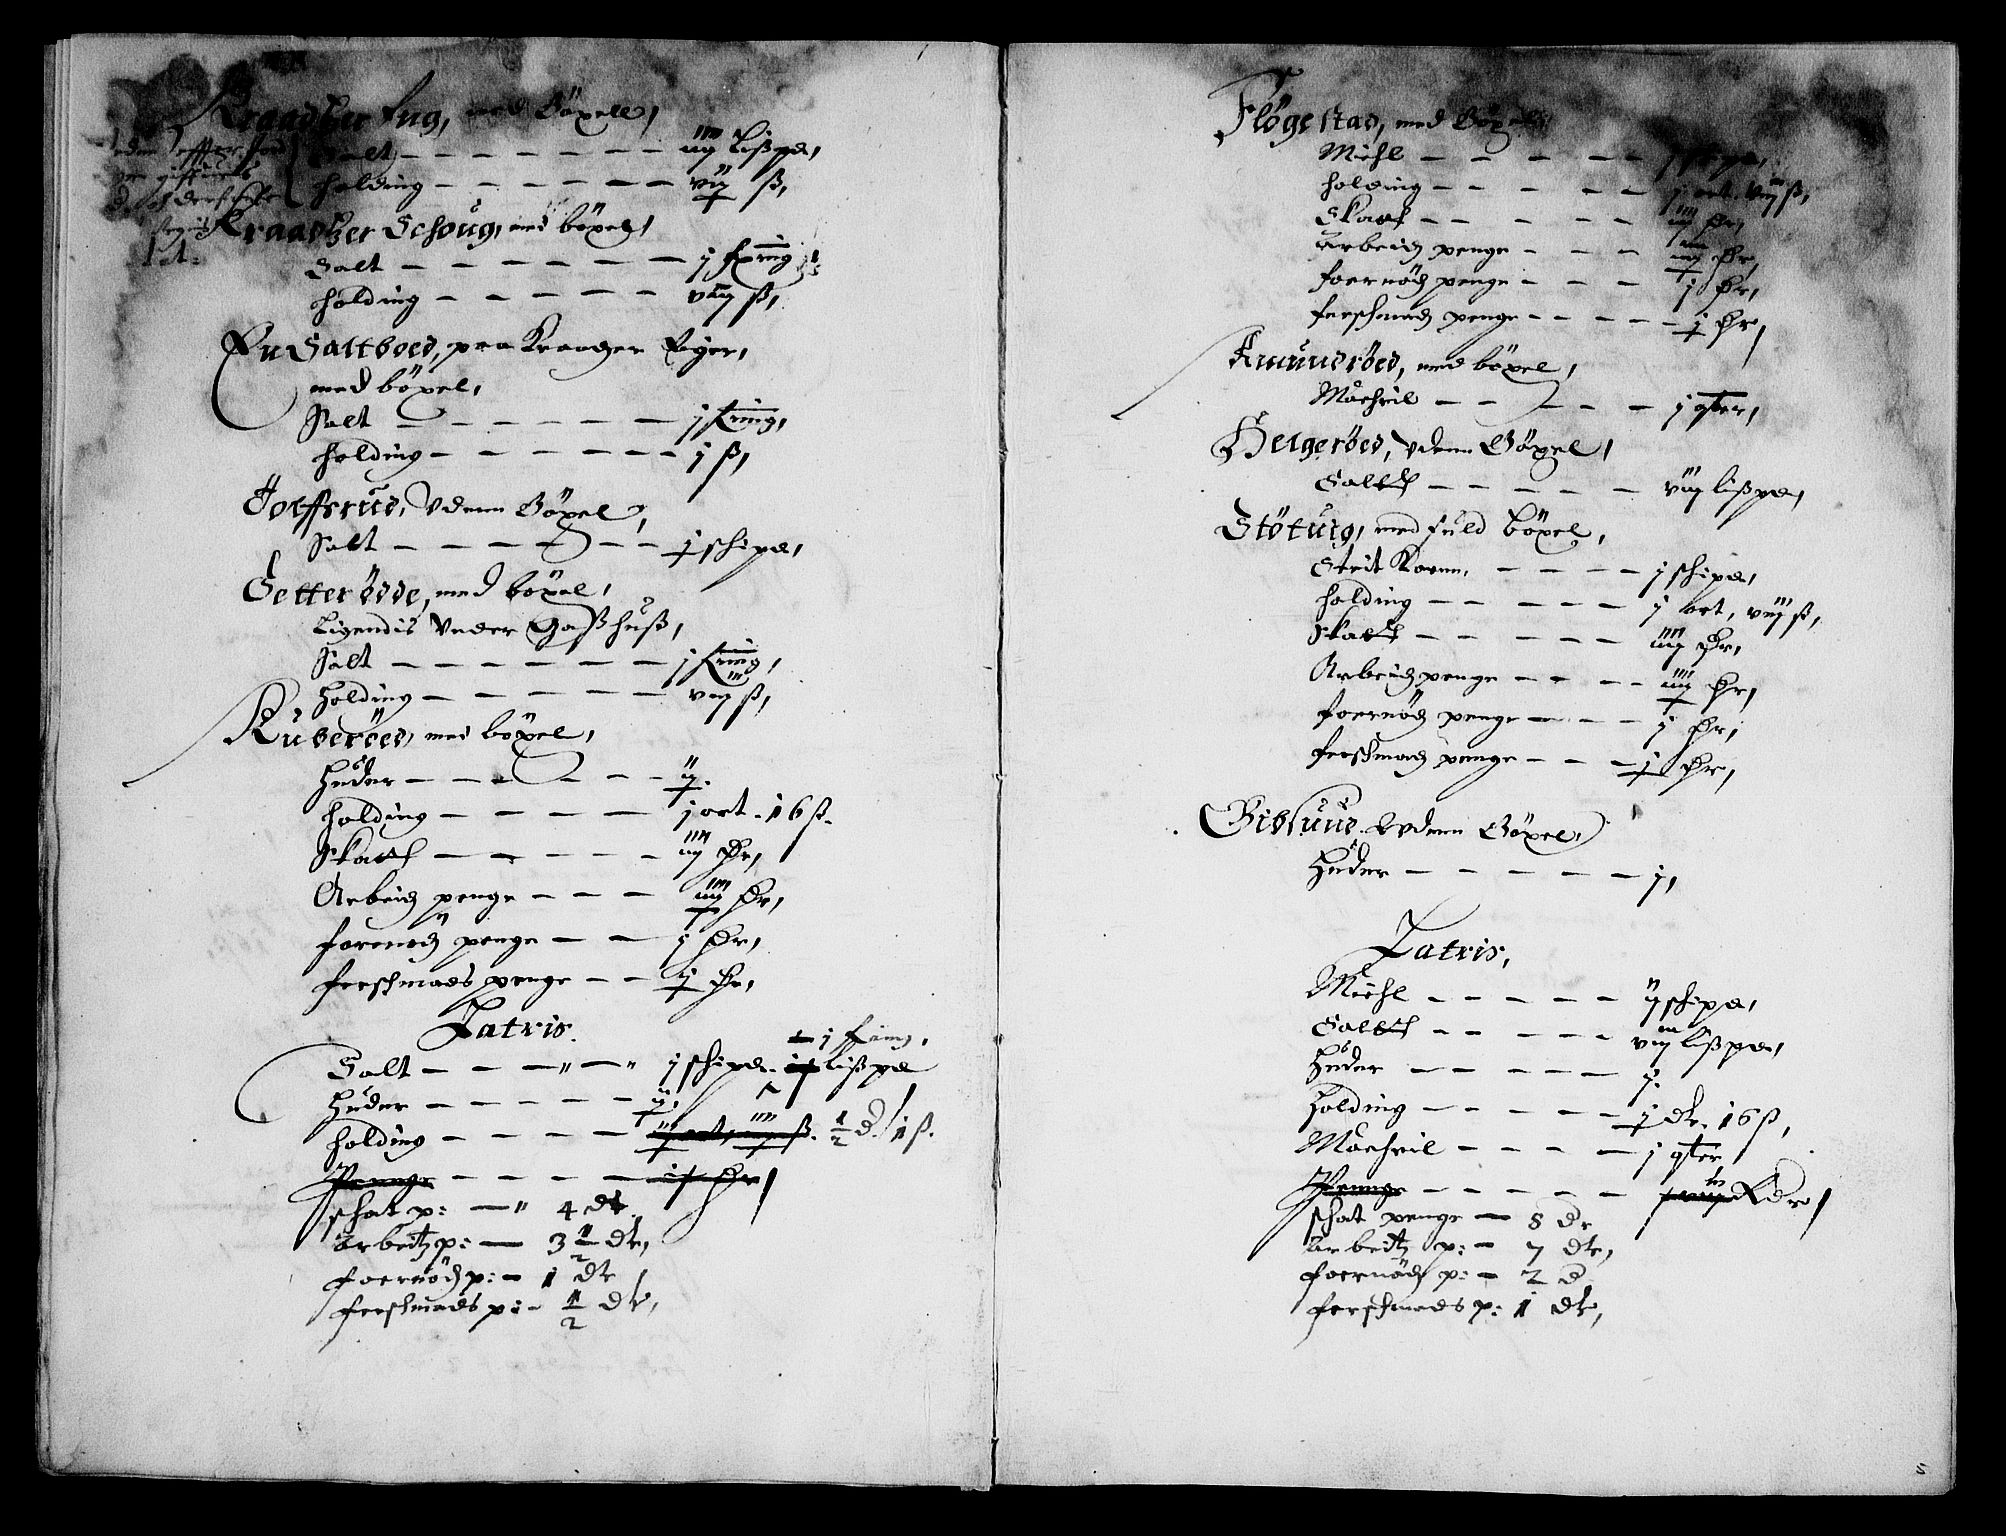 Kraadtzer Eng, med Böxell,
Salt - - - - - - - iiij Lißpd,
holding - - - - - - viij ß,
Kraadtzer Schoug, med böxel,
Salt - - - - - - j fring
holding - - - - - viij ß,
En Saltboed, paa Kraadzer Eyer,
med böxel,
Salt - - - - - - j fring,
holding - - - - - - j ß,
Jolffsrüd, Vdenn Böxel,
Salt - - - - - - j schipd,
Setterödde, med böxel,
Ligendis Vnder Gaßhuß,
Salt - - - - - - j fring,
Holding - - - - - - viij ß,
Küberöed, med böxel,
Huder - - - - - - ij.
holding - - - - - j ort. 16 ß.
Skatt - - - - - iiij Dr,
Arbeidz penge - - - iiij Dr,
forenödz penge - - j Dr,
ferschmads penge - - j Dr,
Latris.
- j fring,
Salt - - - " - " j schipd. Lißpd
Huder - - - - - ij,
holding - - - - - ij ort, ß. 1/2 d. 1 ß.
Penge - - - - - Dr,
schat p: - " 4 dr.
Arbeitz p: - 3 1/2 dr,
foernödz p: - 1 dr
ferschmads p: - 1/2 dr,
Flögestad, med Böxel,
Miehl - - - - - j schipd,
holding - - - - - j ort. viij ß,
Skatt - - - - - iiij Dr,
Arbeidz penge - - - iiij Dr,
foernödz penge - - - j Dr,
ferschmadz penge - - - - - j Dr,
Amundröed, med böxel,
Maehvil - - - - - j qter,
Helgeröed, Vdenn Böxel,
Saltt - - - - - viij lißpd,
Stötuig, med fuld böxel,
Strit Korn, - - - - j schipd,
holding - - - - - j ort, viij ß,
Skatt - - - - - iiij Dr,
Arbeidz penge - - - - iiij Dr,
foernödz penge - - - j Dr,
ferschmadz penge - - - j Dr,
Gibsund. Vdenn Böxel,
Huder - - - - - j,
Latris,
Miehl - - - - - ij schipd,
Saltt - - - - - viij lißpd,
Huder - - - - - j.
Holding - - - - - j dr. 16 ß,
Maehvil - - - - j qter
Penge - - - - - Rdr,
schat penge - 8 dr
Arbeitz p: - 7 dr,
foernödz p: - 2 d
ferschmads p: 1 dr,
5